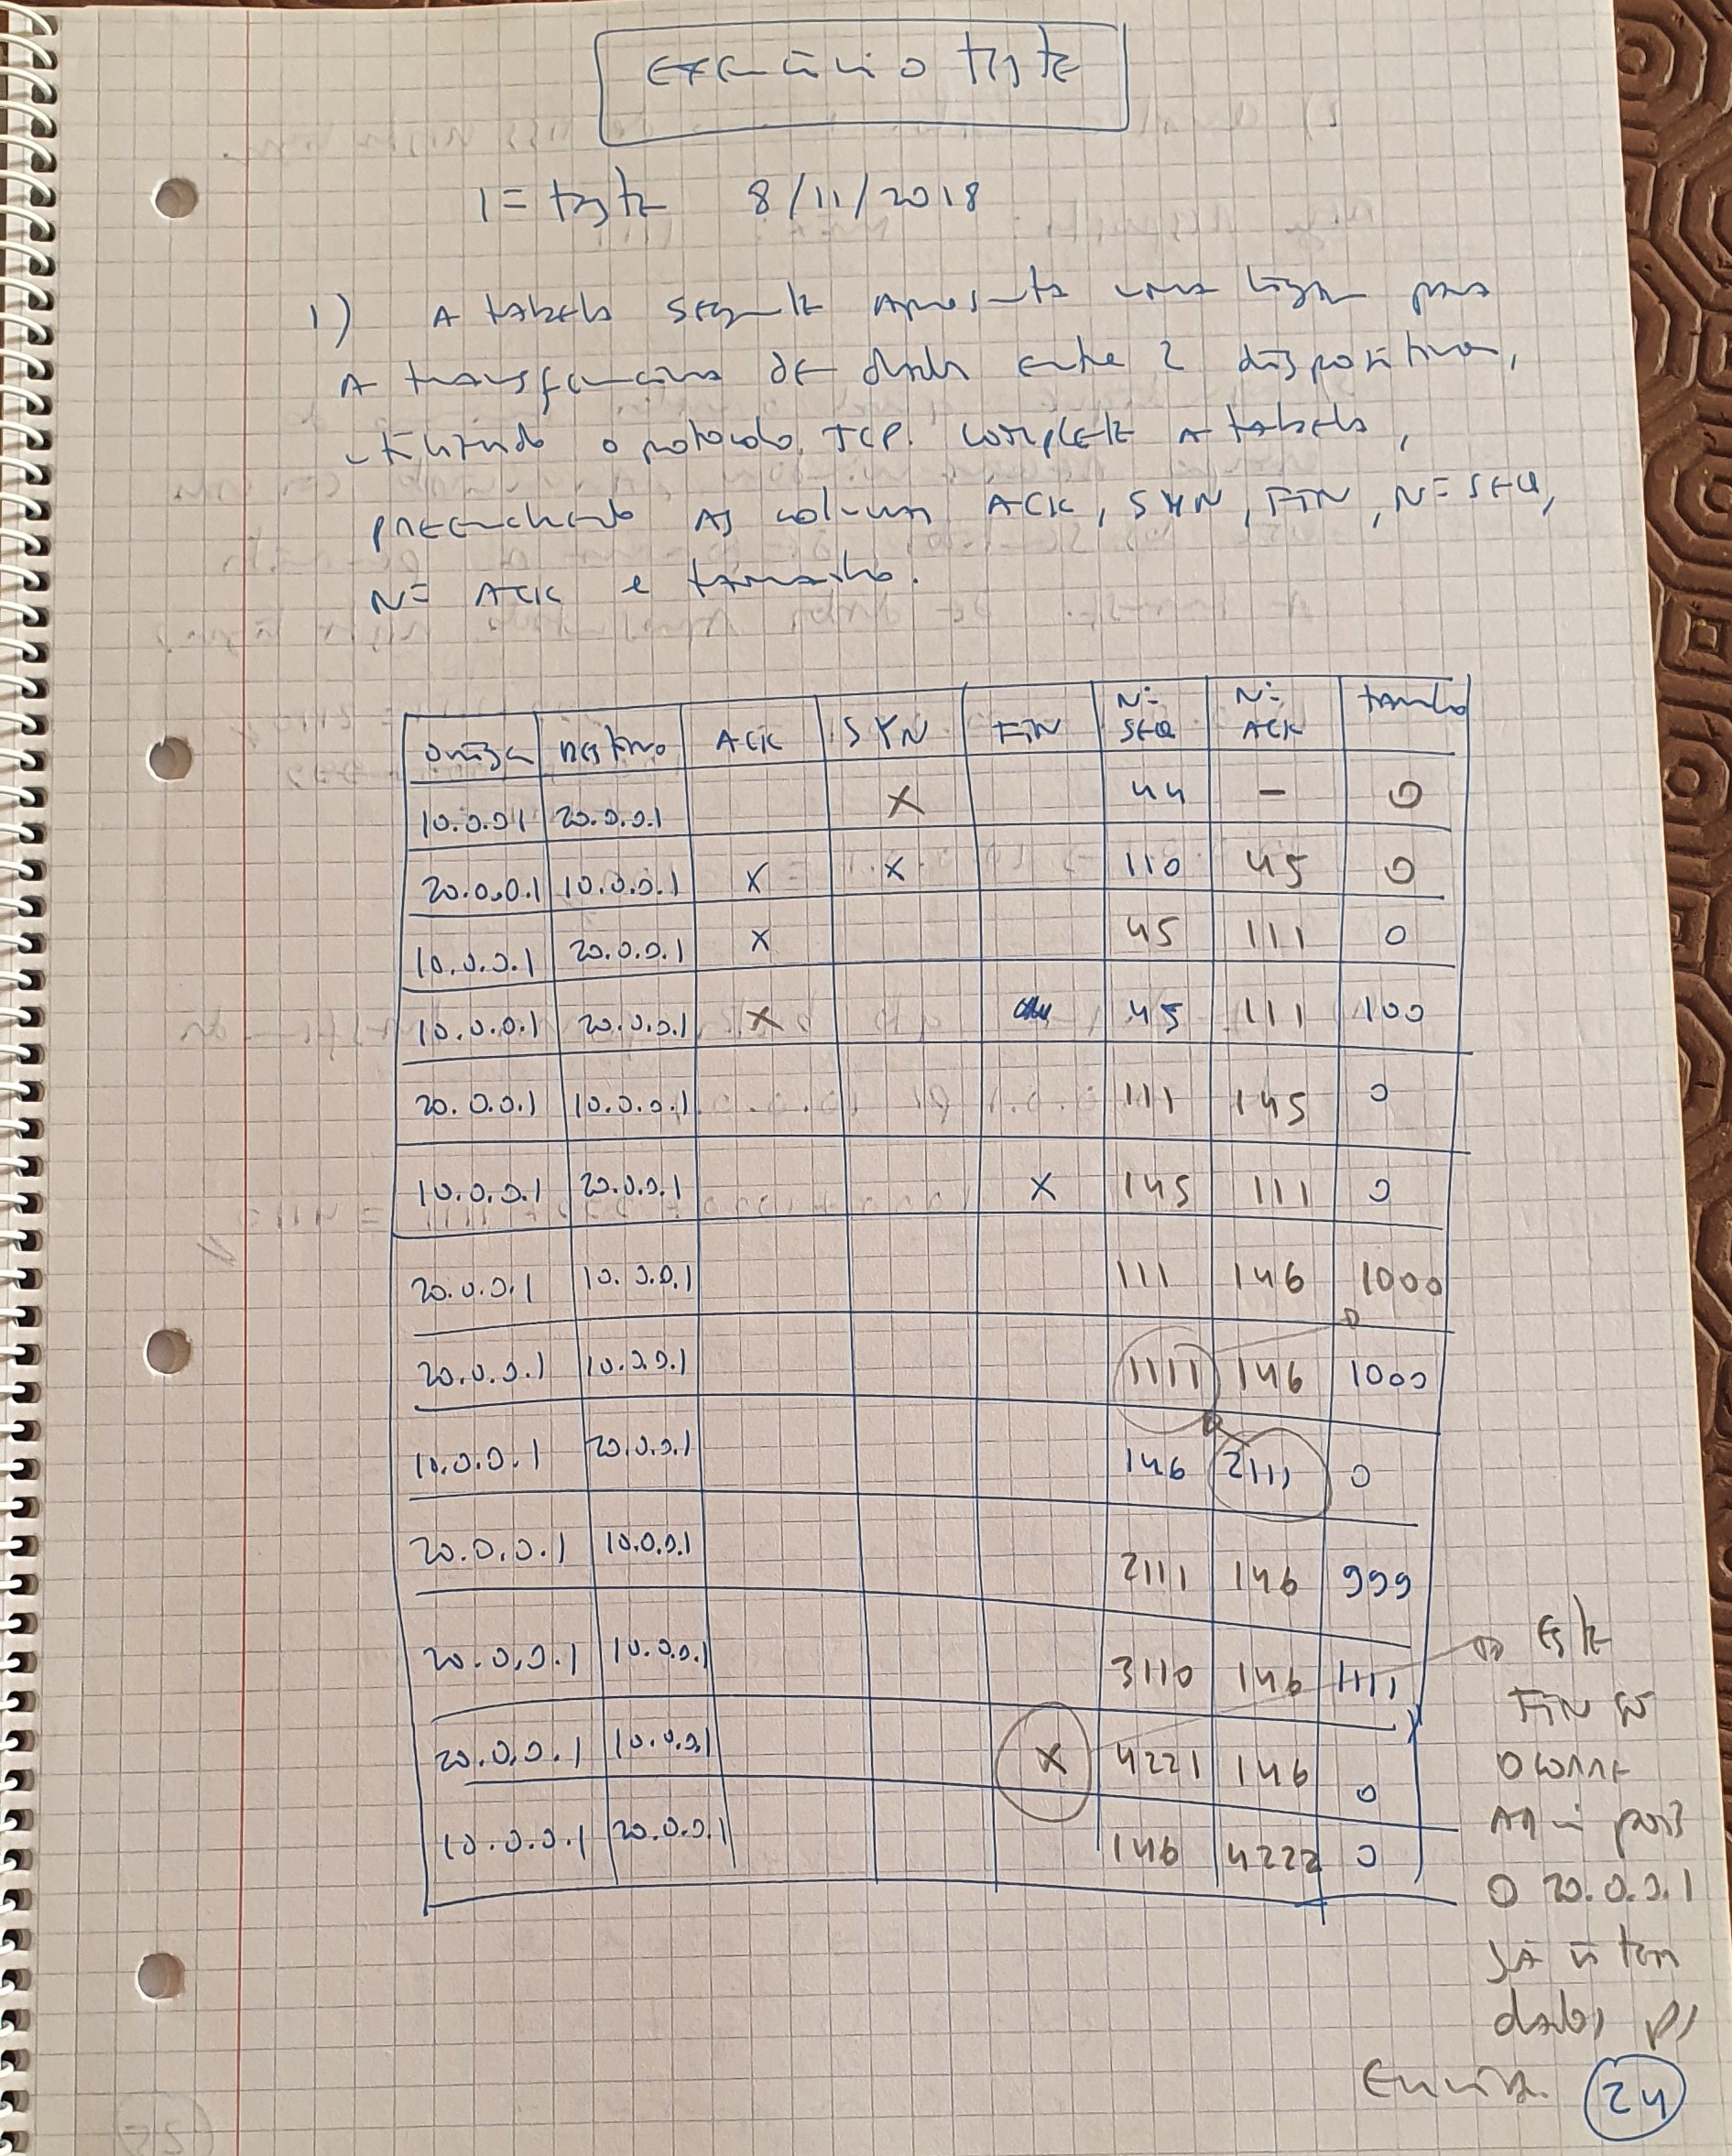 exercício teste
1º teste 8/11/2018
1) A tabela seguinte apresenta uma ligação para
A transferência de dados entre 2 dispositivos,
utilizando o protocolo TCP. complete a tabela,
preenchendo as colunas ACK, SYN, FIN, Nº SEQ,
Nº ACK e tamanho.
origem destino ACK SYN FIN Nº SEQ Nº ACK tamanho
10.0.0.1 20.0.0.1 X 44 - 0
20.0.0.1 10.0.0.1 X X 110 45 0
10.0.0.1 20.0.0.1 X 45 111 0
10.0.0.1 20.0.0.1 X 45 111 100
20.0.0.1 10.0.0.1 111 145 0
10.0.0.1 20.0.0.1 X 145 111 0
20.0.0.1 10.0.0.1 111 146 1000
20.0.0.1 10.0.0.1 1111 146 1000
10.0.0.1 20.0.0.1 146 2111 0
20.0.0.1 10.0.0.1 2111 146 999
20.0.0.1 10.0.0.1 3110 146 1111
20.0.0.1 10.0.0.1 X 4221 146 0
10.0.0.1 20.0.0.1 146 4222 0
Este
FIN só
ocorre
aqui pois
O 20.0.0.1
já ñ tem
dados p/
Enviar
24